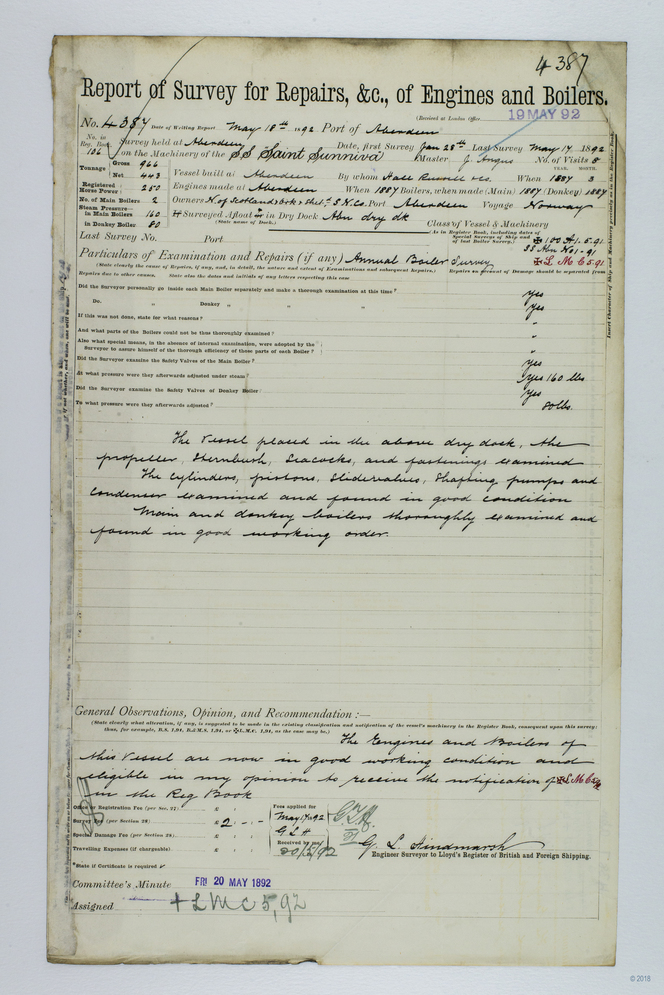 4387
Report of Survey for Repairs, &c., of Engines and Boilers.
(Received at London Office 19 MAY 92
No. 4387 Date of Writing Report May 18th 1892 Port of Aberdeen
No. in Reg. Book 106 Survey held at Aberdeen Date, first Survey Jan 28th Last Survey May 17 1892
on the Machinery of the SS Saint Sunniva Master J. Angus No. of Visits 8
Tonnage Gross 966 Net 443
Vessel built at Aberdeen By whom Hall Russell & Co. When YEAR. 1887 MONTH. 3
Registered Horse Power 250 Engines made at Aberdeen When 1887 Boilers, when made (Main) 1887 (Donkey) 1887
No. of Main Boilers 2 Owners N. of Scotland & Ork & Shetd S. N. Co. Port Aberdeen Voyage Norway
Steam Pressure in Main Boilers 160 If Surveyed Afloat or in Dry Dock Abn dry dk
(State name of Dock.)
in Donkey Boiler 80
Class of Vessel & Machinery
(As in Register Book, including dates of Special Surveys of Ship and of last Boiler Survey.)
Last Survey No. Port
✠ 100 A1. 5.91
SS Abn No1-91
✠ L M C 5.91
Particulars of Examination and Repairs (if any) Annual Boiler Survey
(State clearly the cause of Repairs, if any, and, in detail, the nature and extent of Examinations and subsequent Repairs.) Repairs on account of Damage should be separated from
Repairs due to other causes. State also the dates and initials of any letters respecting this case
Did the Surveyor personally go inside each Main Boiler separately and make a thorough examination at this time? Yes
Do. " Donkey " " " Yes
If this was not done, state for what reasons? "
And what parts of the Boilers could not be thoroughly examined? "
Also what special means, in the absence of internal examination, were adopted by the
Surveyor to assure himself of the thorough efficiency of those parts of each Boiler? "
Did the Surveyor examine the Safety Valves of the Main Boiler? Yes
At what pressure were they afterwards adjusted under steam? Yes 160 lbs
Did the Surveyor examine the Safety Valves of Donkey Boiler Yes
To what pressure were they afterwards adjusted? 80 lbs.
The Vessel placed in the above dry dock, the
propeller, Sternbush, Seacocks, and fastenings examined
The Cylinders, pistons, Slidevalves, Shafting, pumps and
Condenser examined and found in good condition
Main and donkey boilers thoroughly examined and
found in good working order.
General Observations, Opinion, and Recommendation:—
(State clearly what alteration, if any, is suggested to be made in the existing classification and notification of the vessel's machinery in the Register Book, consequent upon this survey:
thus, for example, B.S. 1,91, B.&M.S. 1,91, or ✠L.M.C. 1,91, as the case may be.)
The Engines and Boilers of
this Vessel are now in good working condition and
eligible in my opinion to receive the notification of ✠ L M C 5.92
in the Reg Book
Office or Registration Fee (per Sec. 27) £ : :
Survey Fee (per Section 28) £ 2 - -
Special Damage Fee (per Section 28) £ : :
Travelling Expenses (if chargeable) £ : :
Fees applied for
May 17 92
G L H
Received by me,
20/5/92
G. L. Hindmarsh
Engineer Surveyor to Lloyd's Register of British and Foreign Shipping.
*State if Certificate is required
Committee's Minute FRI 20 MAY 1892
Assigned + L M C 5,92
© 2018